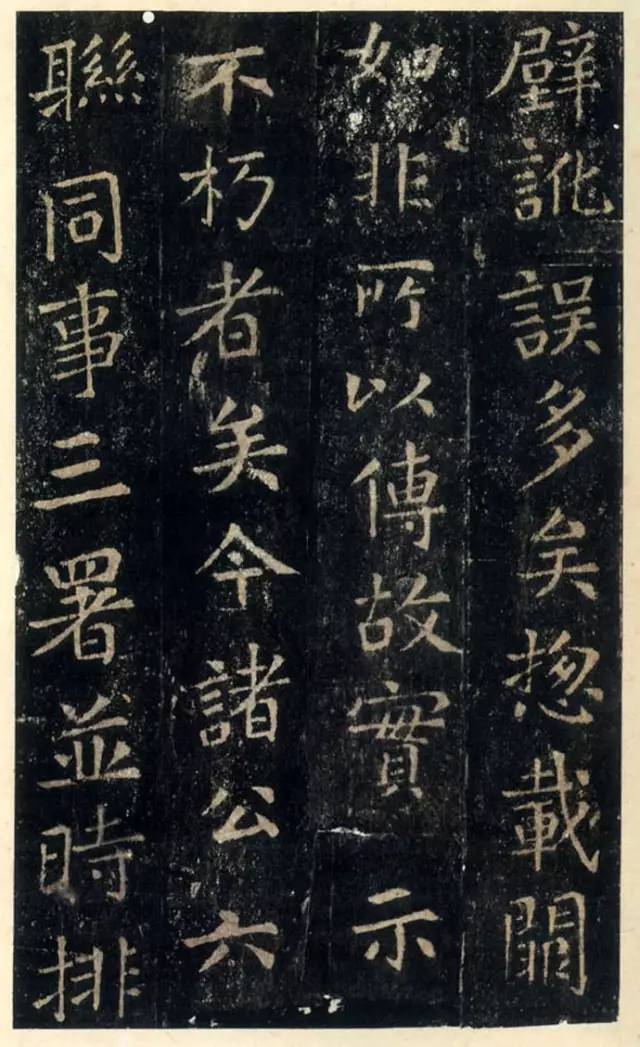 壁訛誤多矣揔載闕
如非所以傳故實示
不朽者矣今諸公六
聯同事三署並時排